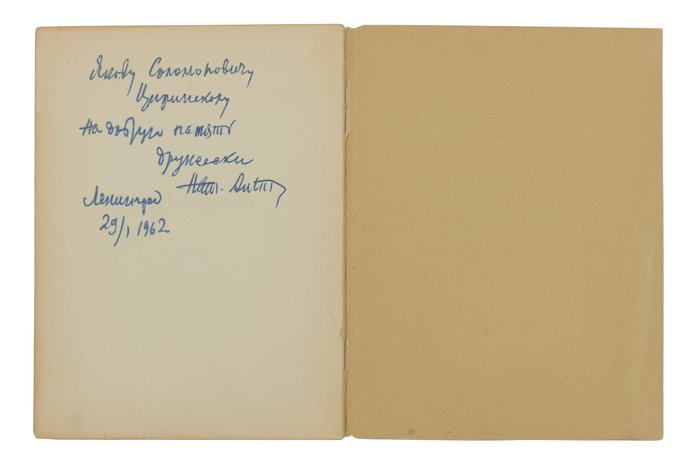 Якову Соломоновичу
Циринскому
На добрую память
дружески
Ленинград
29/I 1962